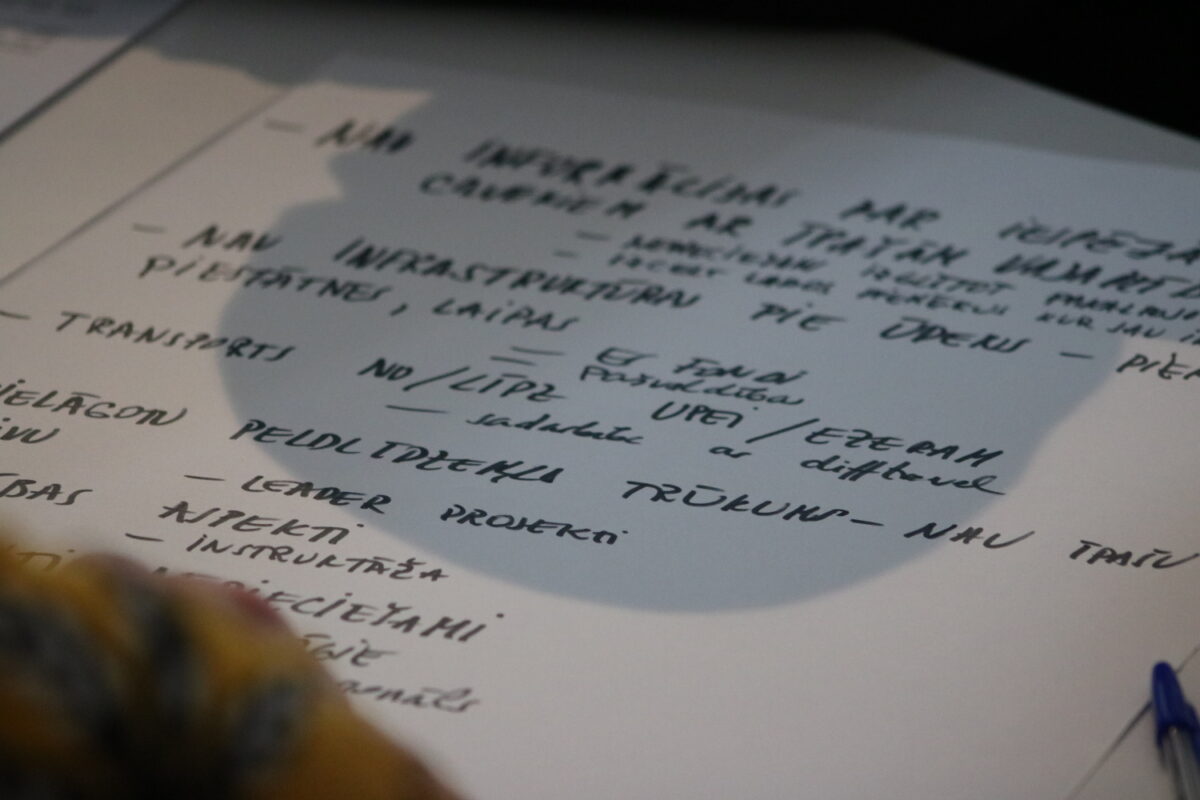 — NAV INFORMĀCIJAS PAR IESPĒJA
CILVĒKIEM AR ĪPAŠĀM VAJADZĪ
— NEPIECIEŠAMI IZGLĪTOT
KUR JAU
— NAV INFRASTRUKTŪRA PIE ŪDENS — PIEM
PIESTĀTNES, LAIPAS
— ES FONDI
— Pašvaldība
— TRANSPORTS NO/LĪDZ UPEI/EZERAM
— sadarbība ar difftravel
PIELĀGOTU PELDLĪDZEKĻU TRŪKUMS — NAV ĪPAŠU
— LEADER PROJEKTI
ĪBAS ASPEKTI
— INSTRUKTĀŽA
NEPIECIEŠAMI